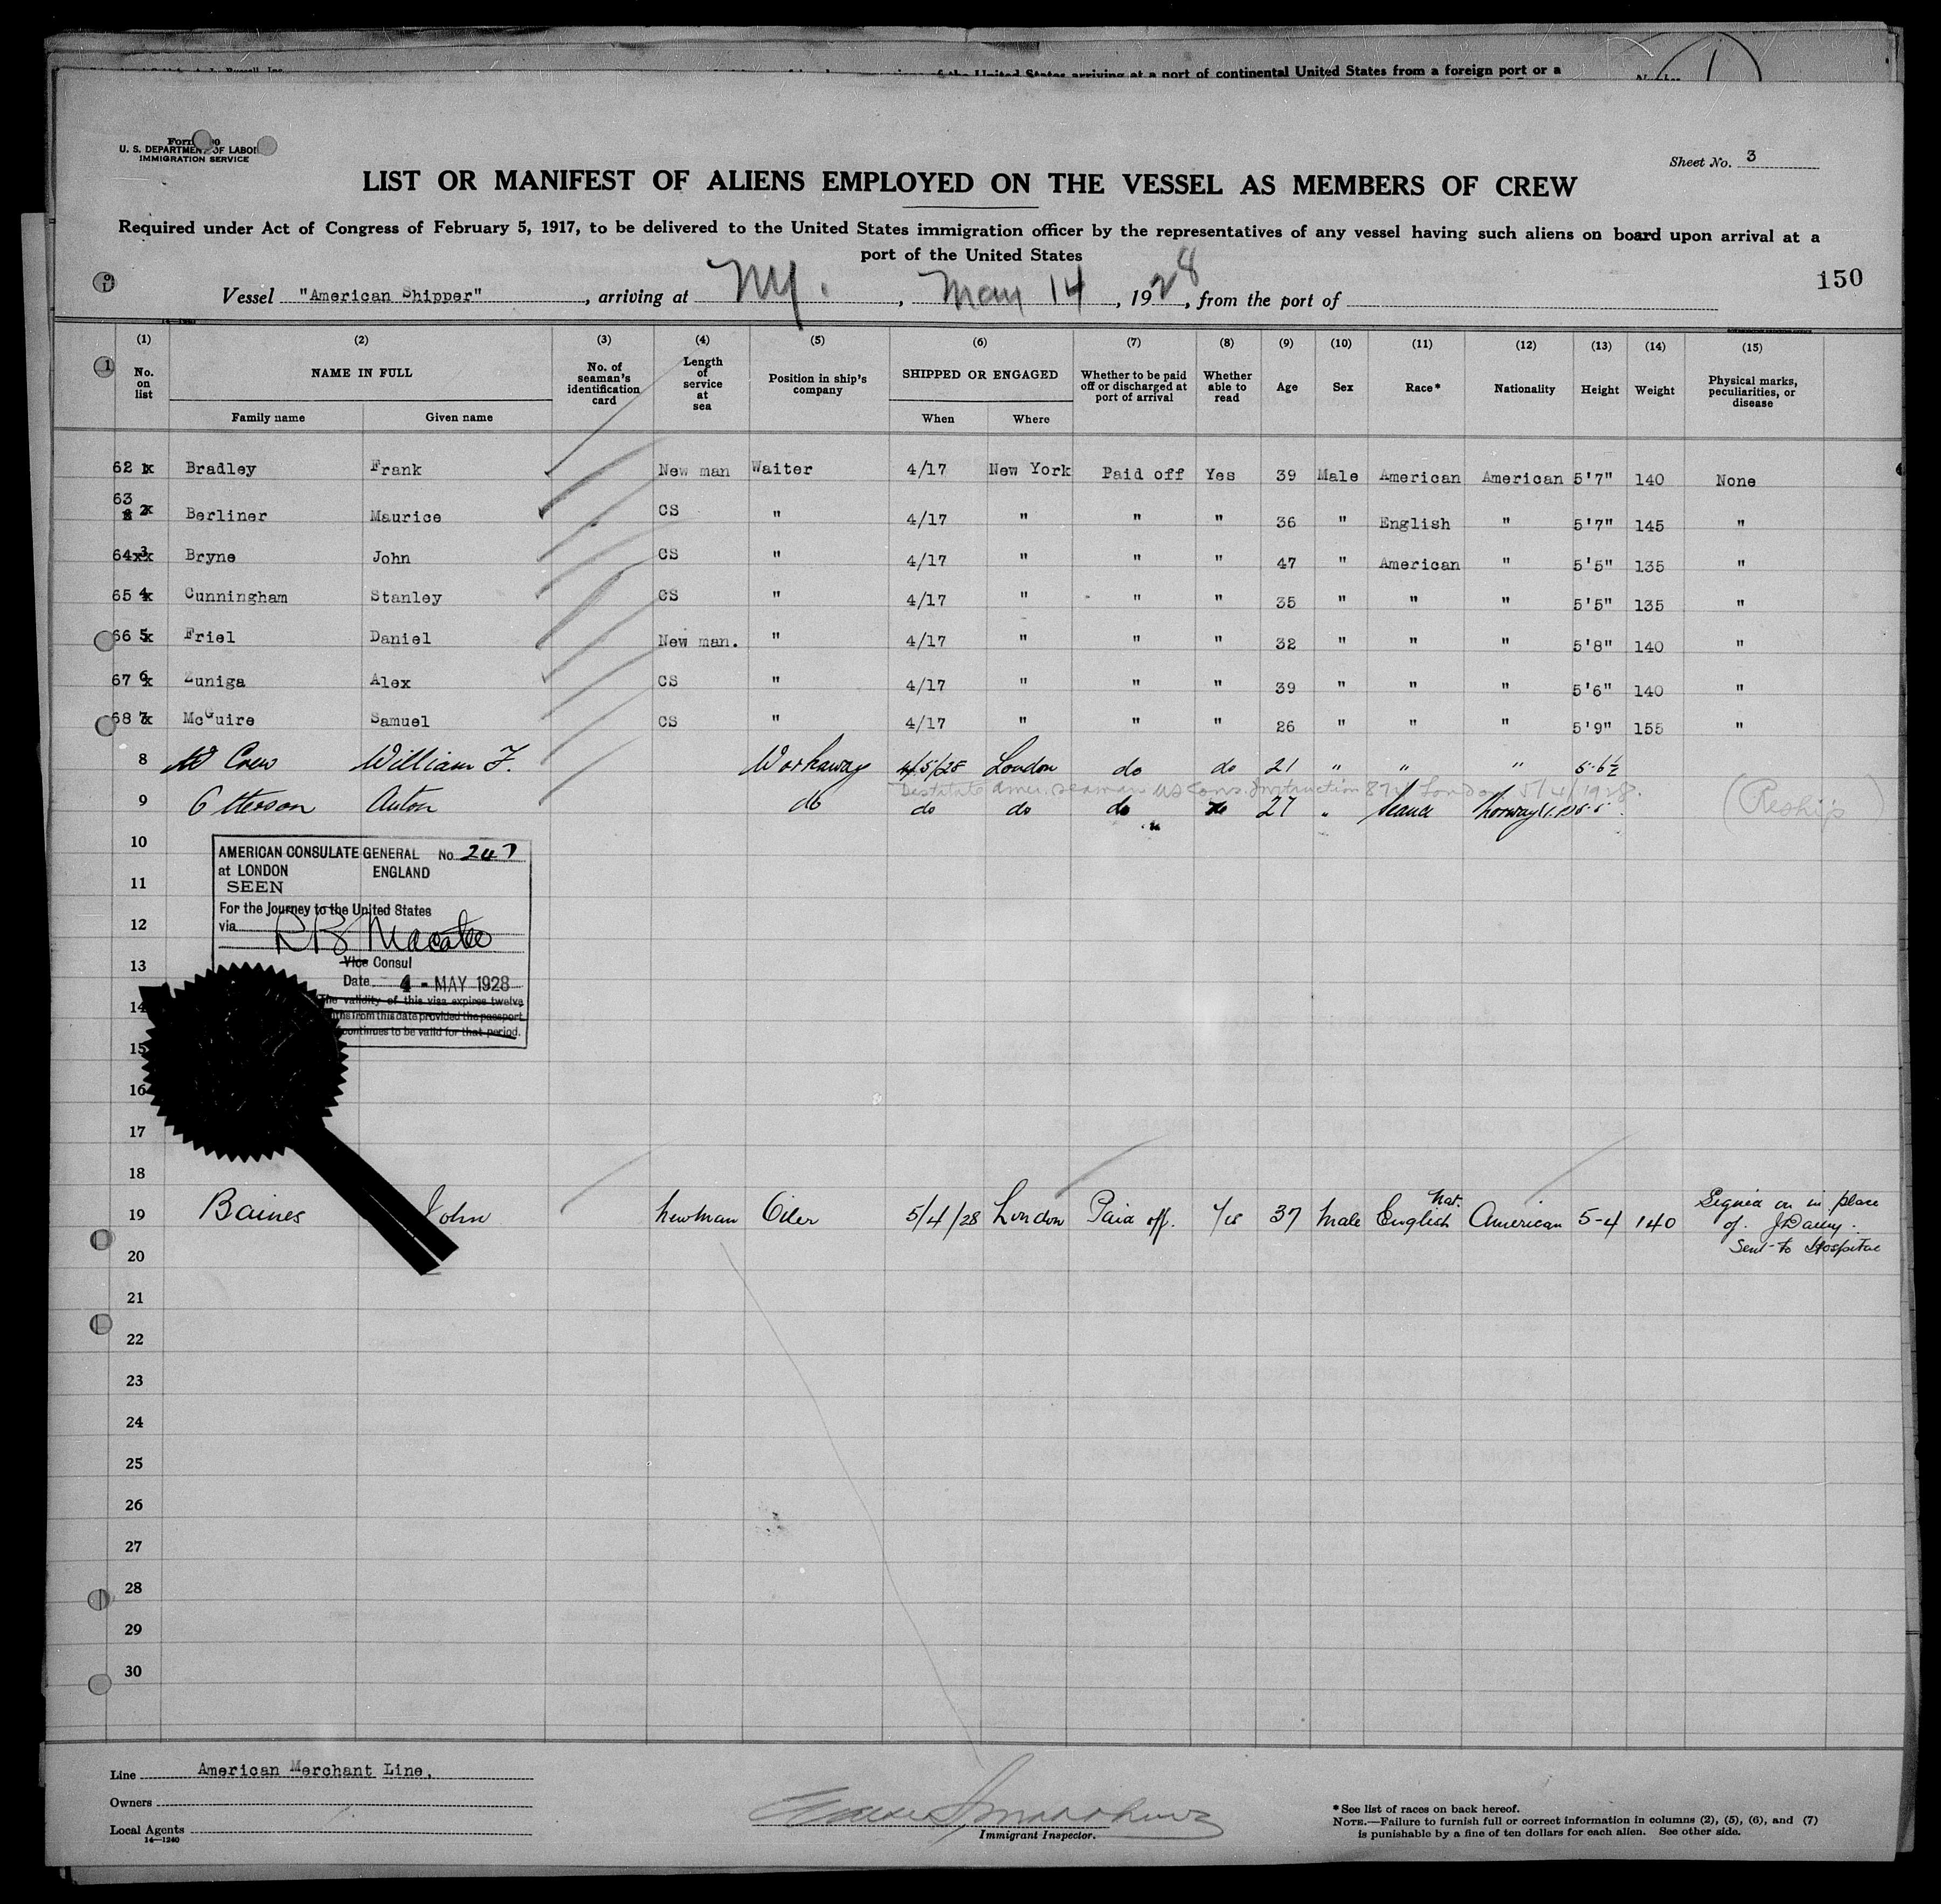 of the United States arriving at a port of continental United States from a foreign port or a
U. S. DEPARTMENT OF LABOR
IMMIGRATION SERVICE
Sheet No. 3
LIST OR MANIFEST OF ALIENS EMPLOYED ON THE VESSEL AS MEMBERS OF CREW
Required under Act of Congress of February 5, 1917, to be delivered to the United States immigration officer by the representatives of any vessel having such aliens on board upon arrival at a
port of the United States
150
Vessel "American Shipper", arriving at NY., May 14, 1928, from the port of
(1) (2) (3) (4) (5) (6) (7) (8) (9) (10) (11) (12) (13) (14) (15)
No. on list NAME IN FULL No. of seaman's identification card Length of service at sea Position in ship's company SHIPPED OR ENGAGED Whether to be paid off or discharged at port of arrival Whether able to read Age Sex Race* Nationality Height Weight Physical marks, peculiarities, or disease
Family name Given name When Where
62 Bradley Frank New man Waiter 4/17 New York Paid off Yes 39 Male American American 5'7" 140 None
63 2 Berliner Maurice CS " 4/17 " " " 36 " English " 5'7" 145 "
64 3 Bryne John CS " 4/17 " " " 47 " American " 5'5" 135 "
65 4 Cunningham Stanley CS " 4/17 " " " 35 " " " 5'5" 135 "
66 5 Friel Daniel New man. " 4/17 " " " 32 " " " 5'8" 140 "
67 6 Zuniga Alex CS " 4/17 " " " 39 " " " 5'6" 140 "
68 7 McGuire Samuel CS " 4/17 " " " 26 " " " 5'9" 155 "
8 Mc Crew William F. Workaway 4/5/28 London do do 21 " " " 5-6½
Destitute Amer. Seaman US Cons. Instruction London 5/4/1928.
9 Otterson Anton do do do do 27 " Scand Norway 5-5 (Reship)
10
AMERICAN CONSULATE GENERAL No. 247
at LONDON ENGLAND
11
SEEN
For the Journey to the United States
12
via
Vice Consul
13
Date 4 - MAY 1928
The validity of this visa expires twelve
14
months from this date provided the passport
continues to be valid for that period.
15
16
17
18
19 Baines John New man Oiler 5/4/28 London Paid off. Yes 37 Male English Nat. American 5-4 140 Signed on in place
of
Sent to Hospital
20
21
22
23
24
25
26
27
28
29
30
Line American Merchant Line.
Owners
Local Agents
14—1240
Immigrant Inspector.
*See list of races on back hereof.
NOTE.—Failure to furnish full or correct information in columns (2), (5), (6), and (7)
is punishable by a fine of ten dollars for each alien. See other side.